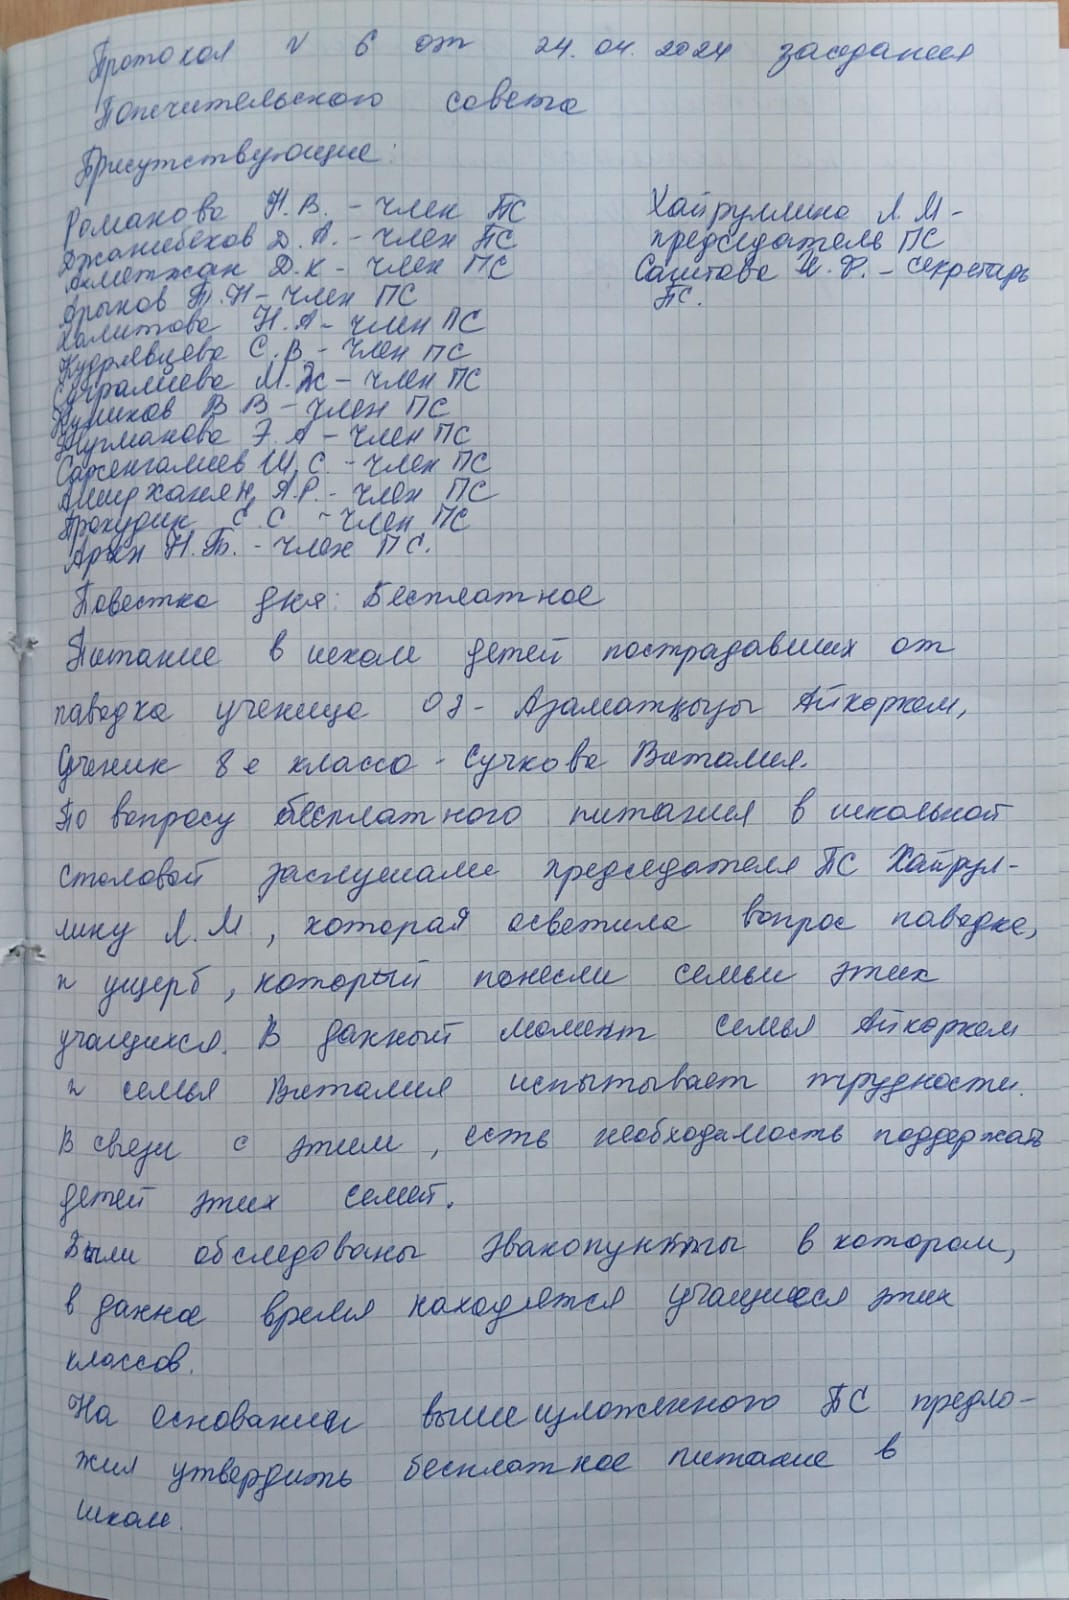 Протокол № 6 от 24.04.2024 заседания
Попечительского совета
Присутствующие:
Романова Н.В. - член ПС
Джанибеков Д.А. - член ПС
Ахметжан Д.К - член ПС
Арынов Т.Н - член ПС
Халитова Н.А - член ПС
Кудрявцева С.В - член ПС
Сугралиева М.Ж - член ПС
Куликов В В - член ПС
Нугманова Э.А - член ПС
Сарсенгалиев Ш.С. - член ПС
Амирханян А.Р. - член ПС
Прокудин С.С - член ПС
Арын Н.Б. - член ПС.
Хайруллина Л.М -
председатель ПС
Саитова И.Ф. - секретарь
ПС.
Повестка дня: Бесплатное
Питание в школе детей пострадавших от
паводка ученица 0 З - Азаматқызы Айкоркем,
Ученик 8 е класса - Сучкова Виталия.
По вопросу бесплатного питания в школьной
столовой заслушали председателя ПС Хайрул-
лину Л.М, которая осветила вопрос паводка,
и ущерб, который понесли семьи этих
учащихся. В данный момент семья Айкоркем
и семья Виталия испытывает трудности.
В связи с этим, есть необходимость поддержать
детей этих семей.
Были обследованы эвакопункты в котором,
в данное время находятся учащиеся этих
классов.
На основании вышеизложенного ПС предло-
жил утвердить бесплатное питание в
школе.